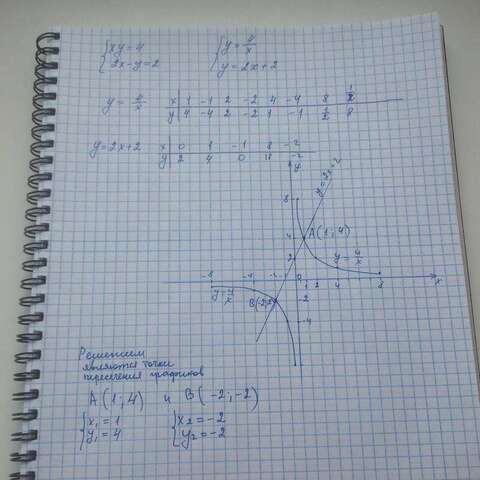 {xy=4 {y=4/x
{2x-y=2 {y=2x+2
y=4/x x 1 -1 2 -2 4 -4 8 1/2
y 4 -4 2 -2 1 -1 1/2 8
y=2x+2 x 0 1 -1 8 -2
y 2 4 0 18 -2
y
8
A(1;4)
4
y=4/x
2
-8 -4 0 1 2 4 8 x
y=4/x B(-2;-2) -2
-4
Решением
являются точки
пересечения графиков
A(1;4) и B(-2;-2)
{x1=1 {x2=-2
{y1=4 {y2=-2